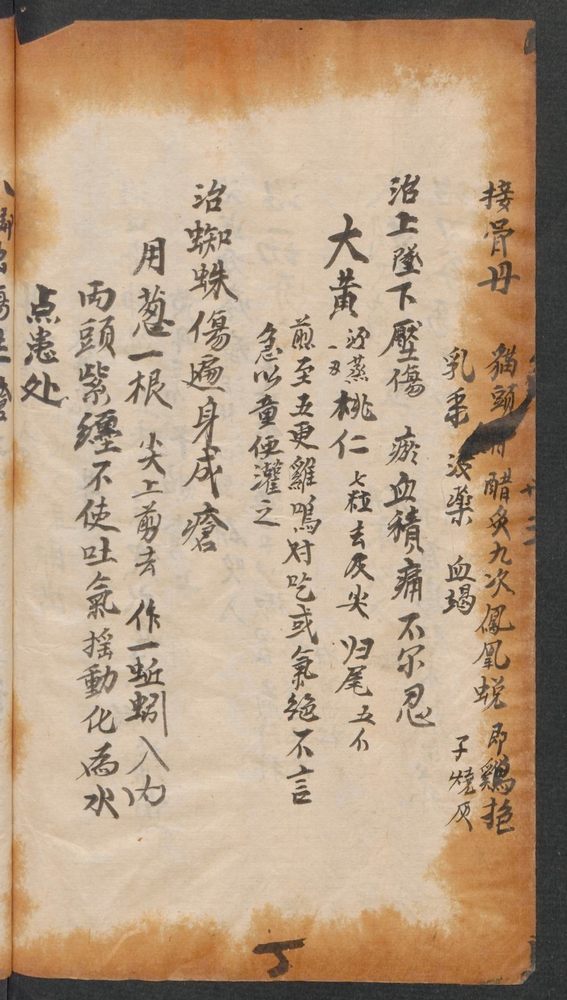 接骨丹 猫頭骨醋炙九次鳳凰蛻即鷄抱
子燒灰
乳香 沒藥 血竭
治上墜下壓傷 瘀血積痛不尔忍
大黄酒蒸一刄桃仁七粒去皮尖归尾五个
煎至五更雞鳴对吃或氣絶不言
急以童便灌之
治蜘蛛傷遍身成瘡
用葱一根 尖上剪去作一蚯蚓入內
両頭紮纏不使吐氣揺動化為水
点患处